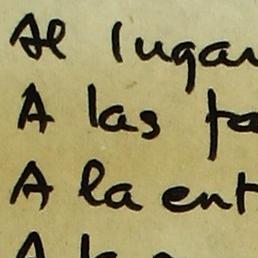 Al lugar
A las fa
A la ent
A la